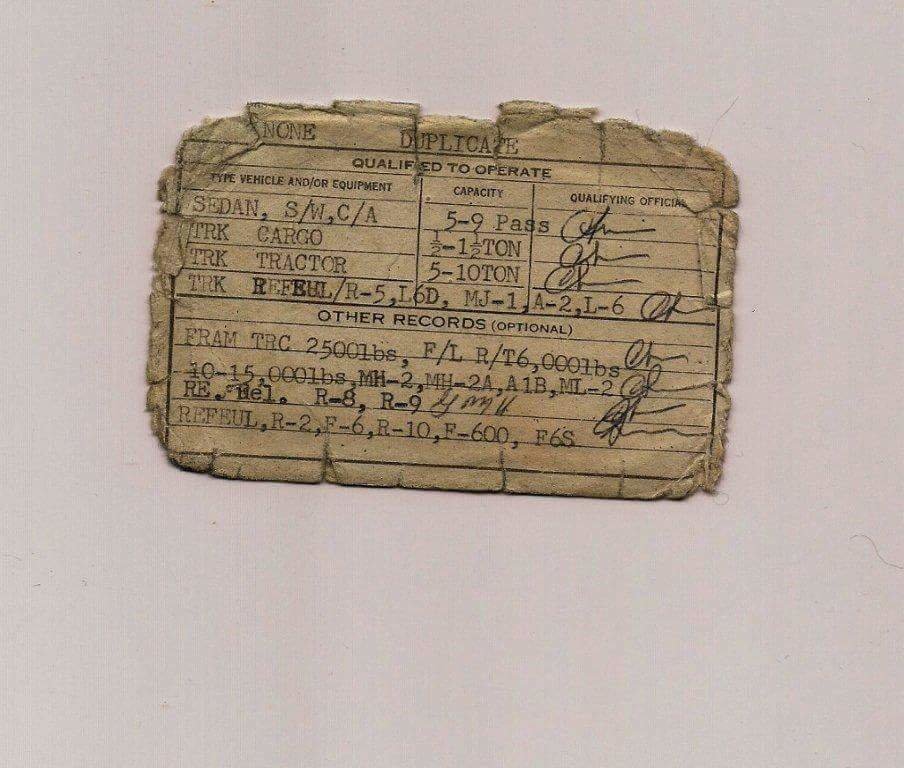 NONE DUPLICATE
QUALIFIED TO OPERATE
TYPE VEHICLE AND/OR EQUIPMENT CAPACITY QUALIFYING OFFICIAL
SEDAN, S/W,C/A 5-9 Pass
TRK CARGO ½-1½TON
TRK TRACTOR 5-10TON
TRK REFEUL/R-5,L6D, MJ-1,A-2,L-6
OTHER RECORDS (OPTIONAL)
FRAM TRC 2500lbs, F/L R/T6,000lbs
10-15,000lbs,MH-2,MH-2A,A1B,ML-2
RE. Del. R-8, R-9
REFEUL,R-2,F-6,R-10,F-600, F6S